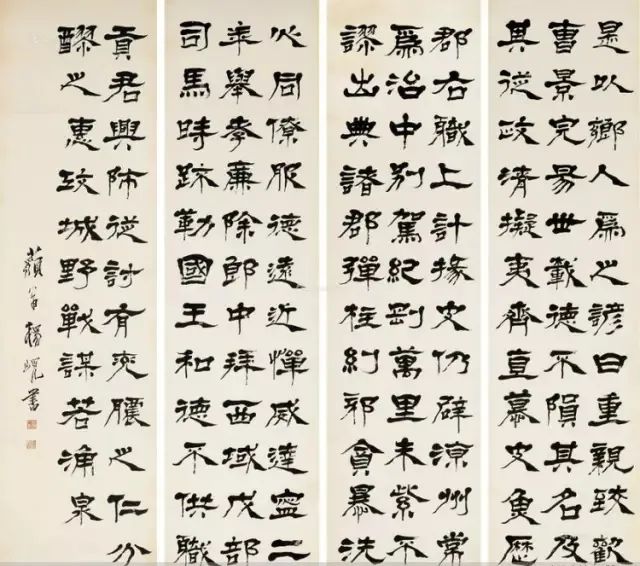 是以鄉人爲之諺曰重親致歡
曹景完易世載德不隕其名及
其從政清擬夷齊直慕史魚歷
郡右職上計掾史仍辟涼州常
爲治中別駕紀剛萬里朱紫不
謬出典諸郡彈枉糾邪貪暴洗
心同僚服德遠近憚威建寧二
年舉孝廉除郎中拜西域戊部
司馬時疏勒國王和德不供職
貢君興師征討有兗膿之仁分
醪之惠攻城野戰謀若涌泉
藐翁楊峴書